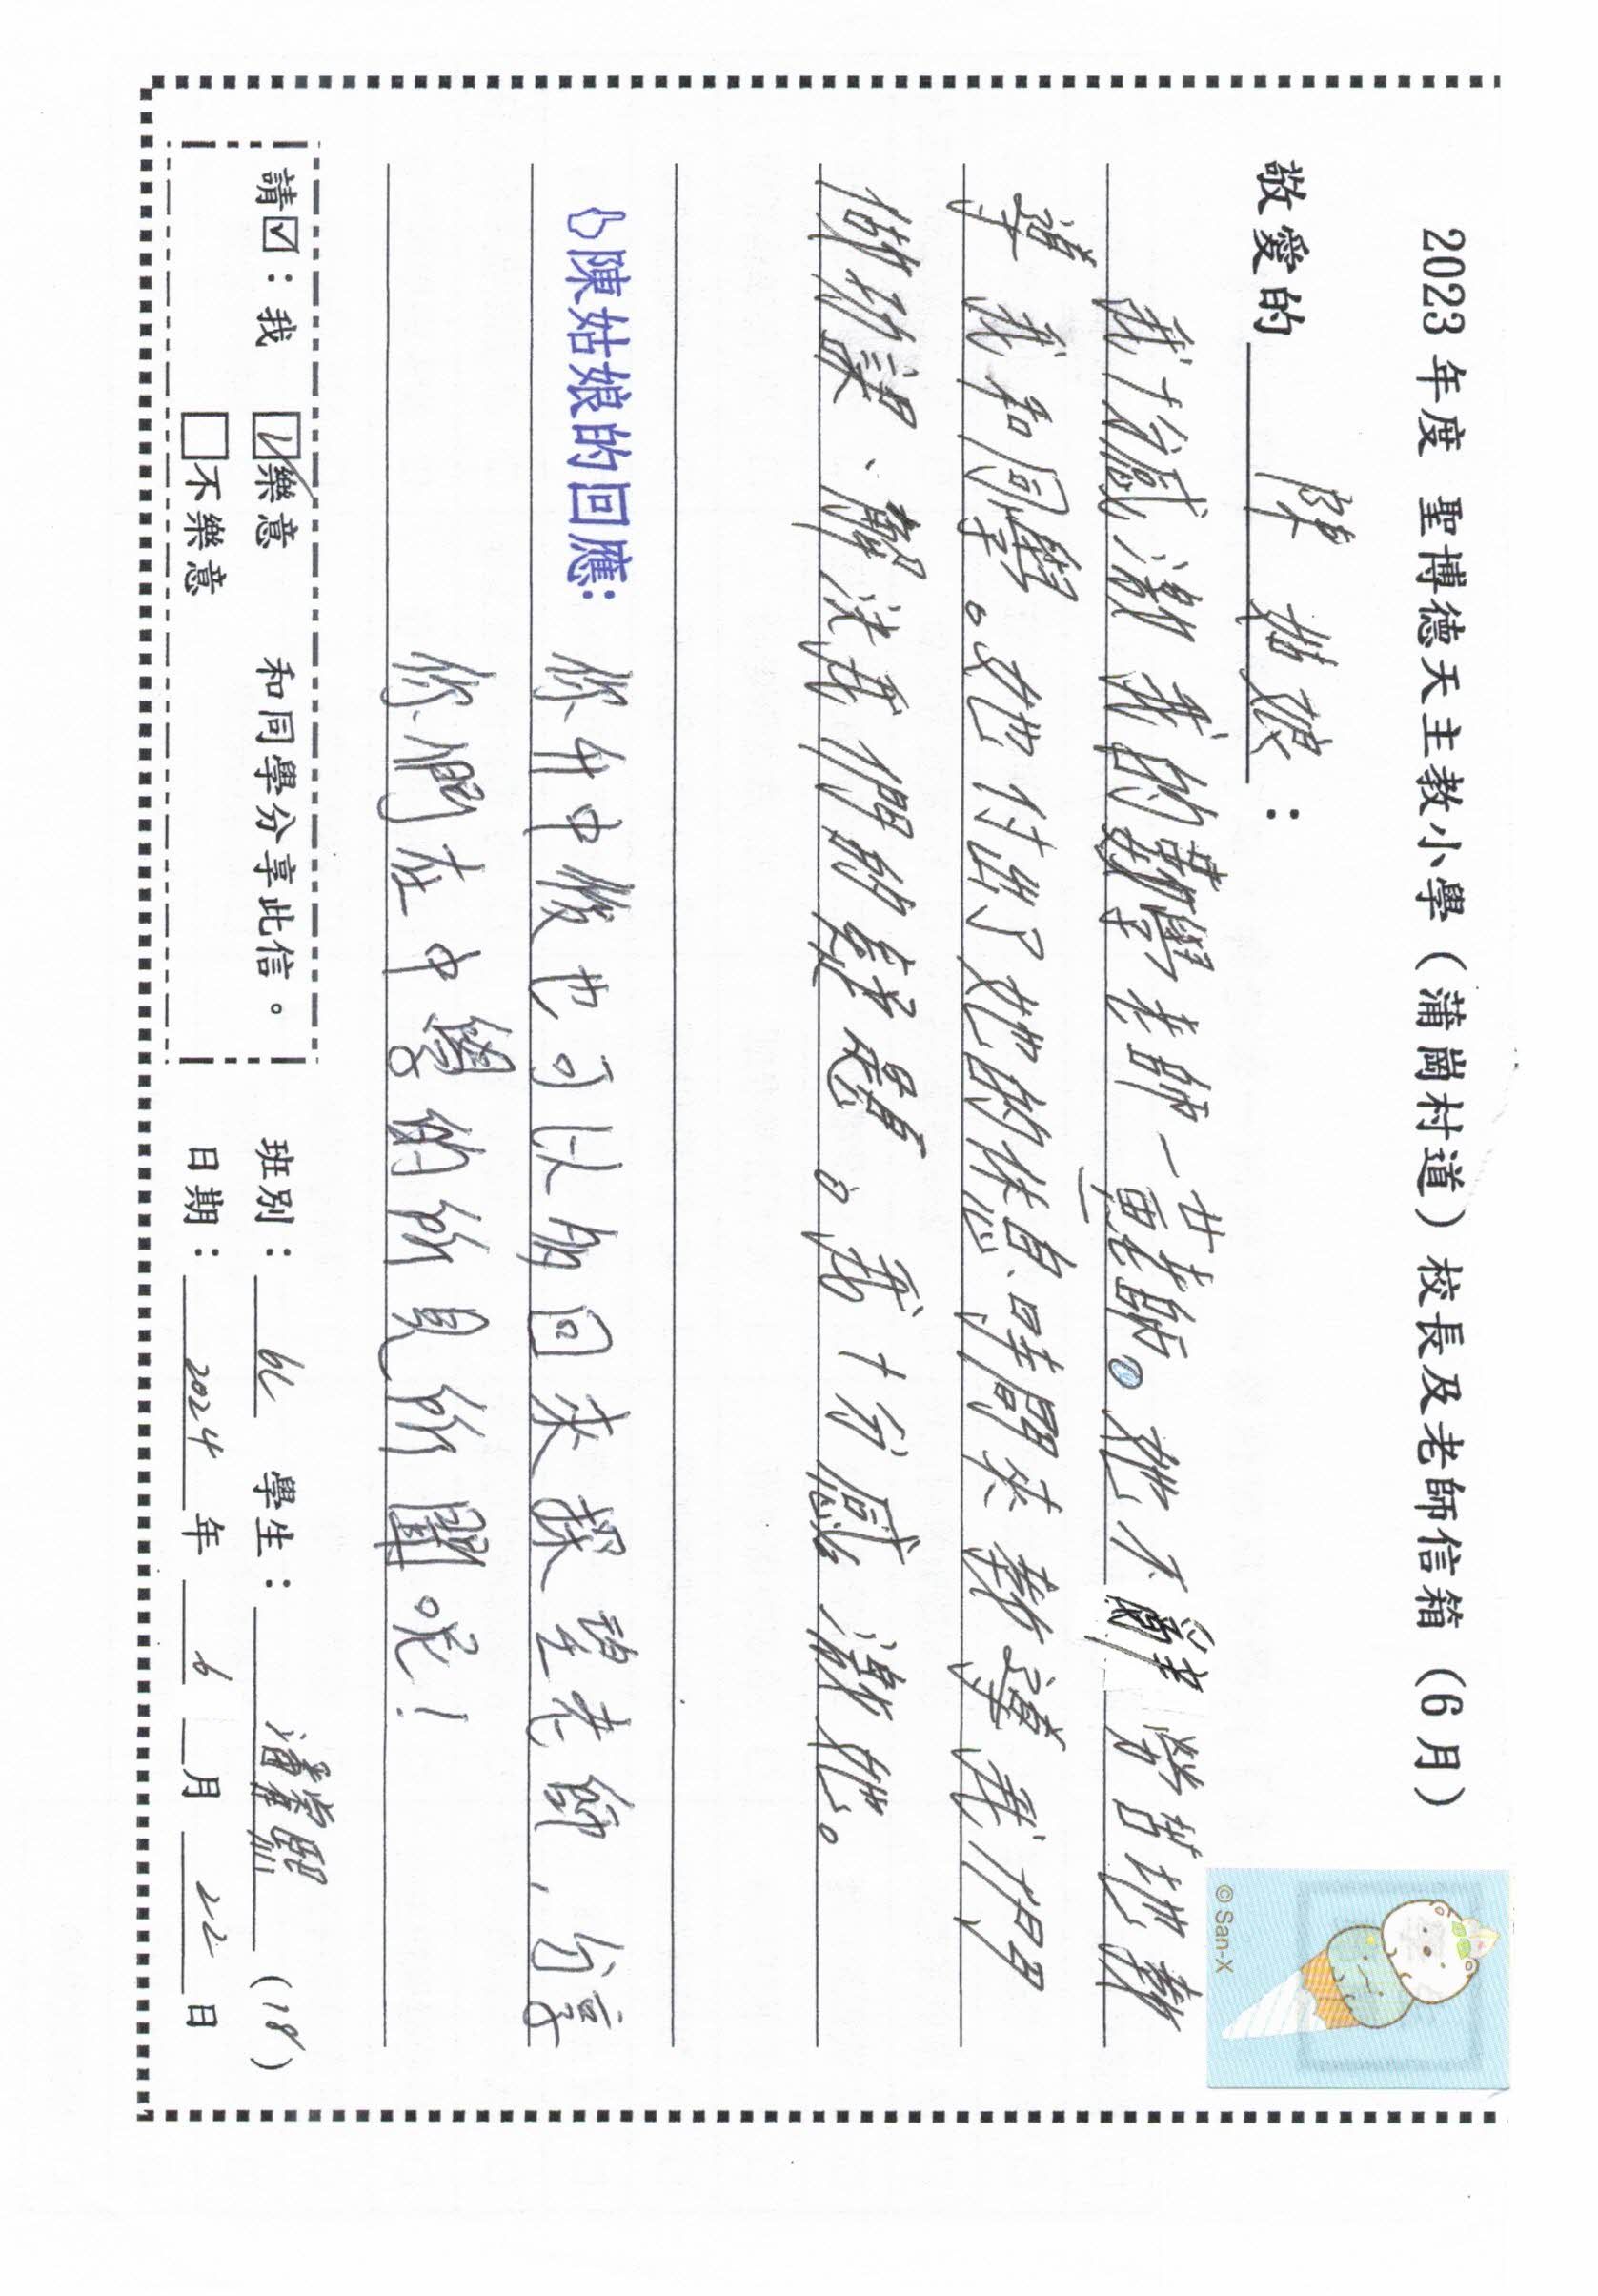 2023 年度 聖博德天主教小學（蒲崗村道）校長及老師信箱（6月）
敬愛的 陳姑娘：
我十分感激我的數學老師—黃老師。她不辭勞苦地教
導我和同學。她付出了她的休息時間來教導我們
做功課、解決我們的疑慮。我十分感激她。
陳姑娘的回應：
你升中後也可以多回來探望老師，分享
你們在中學的所見所聞呢！
請☑：我 ☑樂意 和同學分享此信。 班別：6C 學生： (18)
□不樂意 日期：2024年6月22日
© San-X